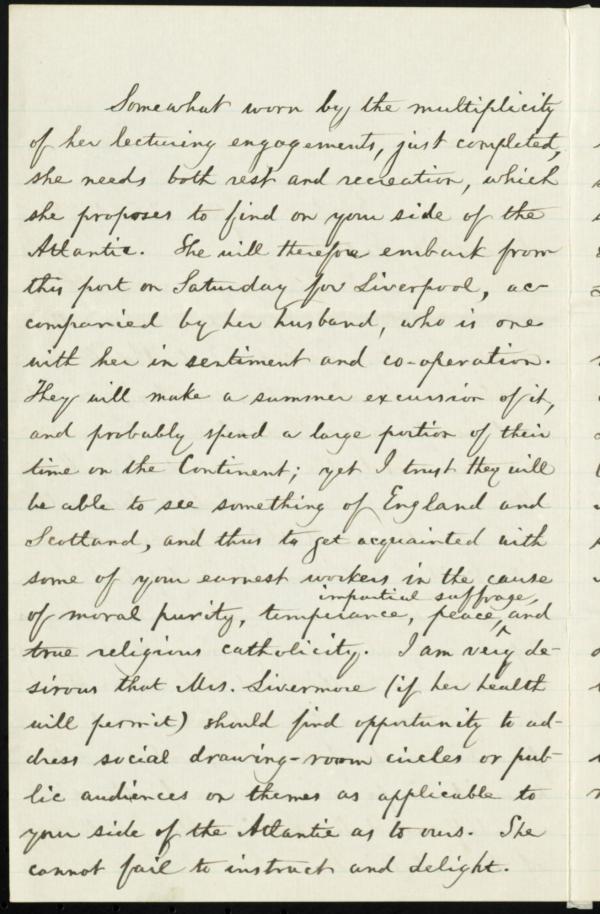 Somewhat worn by the multiplicity
of her lecturing engagements, just completed,
she needs both rest and recreation, which
she proposes to find on your side of the
Atlantic. She will therefore embark from
this port on Saturday for Liverpool, ac-
companied by her husband, who is one
with her in sentiment and co-operation.
They will make a summer excursion of it,
and probably spend a large portion of their
time on the Continent; yet I trust they will
be able to see something of England and
Scotland, and thus to get acquainted with
some of your earnest workers in the cause
impartial suffrage,
of moral purity, temperance, peace, ^ and
true religious catholicity. I am very de-
sirous that Mrs. Livermore (if her health
will permit) should find opportunity to ad-
dress social drawing-room circles or pub-
lic audiences on themes as applicable to
your side of the Atlantic as to ours. She
cannot fail to instruct and delight.